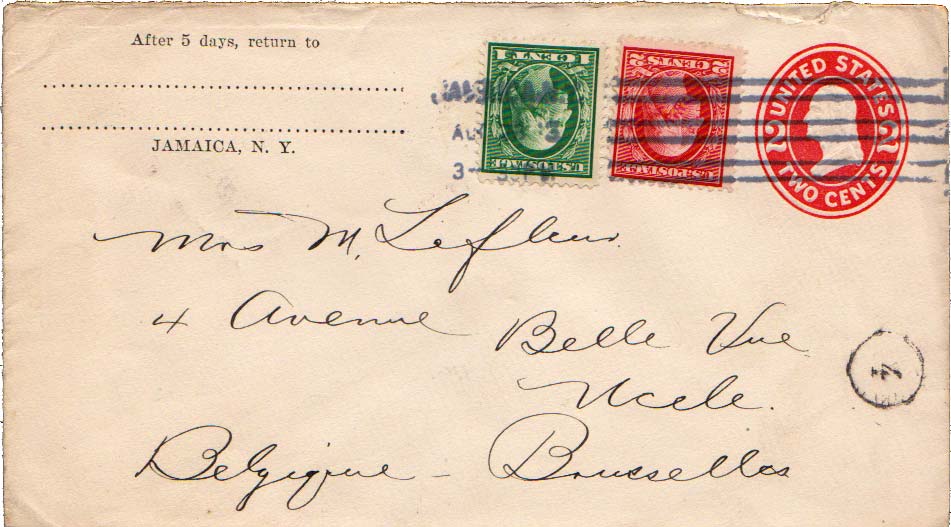 After 5 days, return to
JAMAICA, N. Y.
1 CENT 1
U.S. POSTAGE
2 CENTS 2
U.S. POSTAGE
UNITED STATES
2 2
TWO CENTS
3-
Mrs M. Lefleur.
4 Avenue Belle Vue
Uccle.
Belgique - Brusselles
4